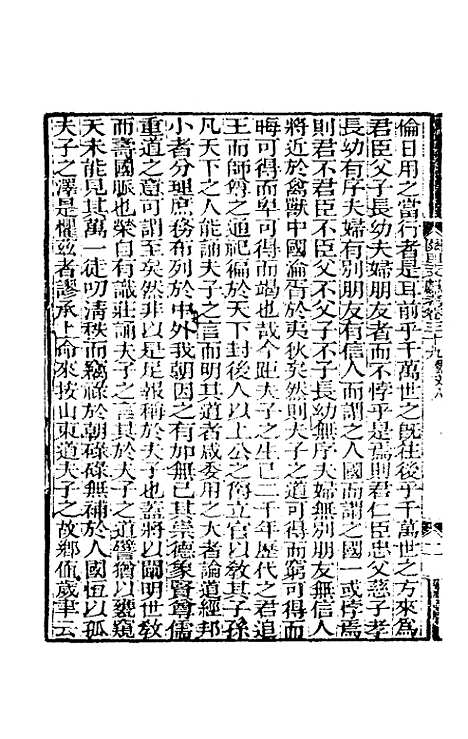 倫日用之當行者是耳前乎千萬世之旣往後乎千萬世之方來爲
君臣父子長幼夫婦朋友者而不悖乎是焉則君仁臣忠父慈子孝
長幼有序夫婦有別朋友有信人而謂之人國而謂之國一或悖焉
則君不君臣不臣父不父子不子長幼無序夫婦無別朋友無信人
將近於禽獸中國淪胥於夷狄矣然則夫子之道可得而窮可得而
晦可得而卑可得而竭也哉今距夫子之生已二千年歷代之君追
王而師尊之通祀徧於天下封後人以上公之爵立官以敎其子孫
凡天下之人能誦夫子之言而明其道者咸委用之大者論道經邦
小者分理庶務布列於中外我朝因之有加無已其崇德象賢尊儒
重道之意可謂至矣然非以是足報稱於夫子也蓋將以闡明世敎
而壽國脈也榮自有識莊誦夫子之言其於夫子之道譬猶以甕窺
天未能見其萬一徒叨淸秩而竊祿於朝碌碌無補於人國恒以孤
夫子之澤是懼兹者謬承上命來按山東道夫子之故鄉値歲聿云
三十九